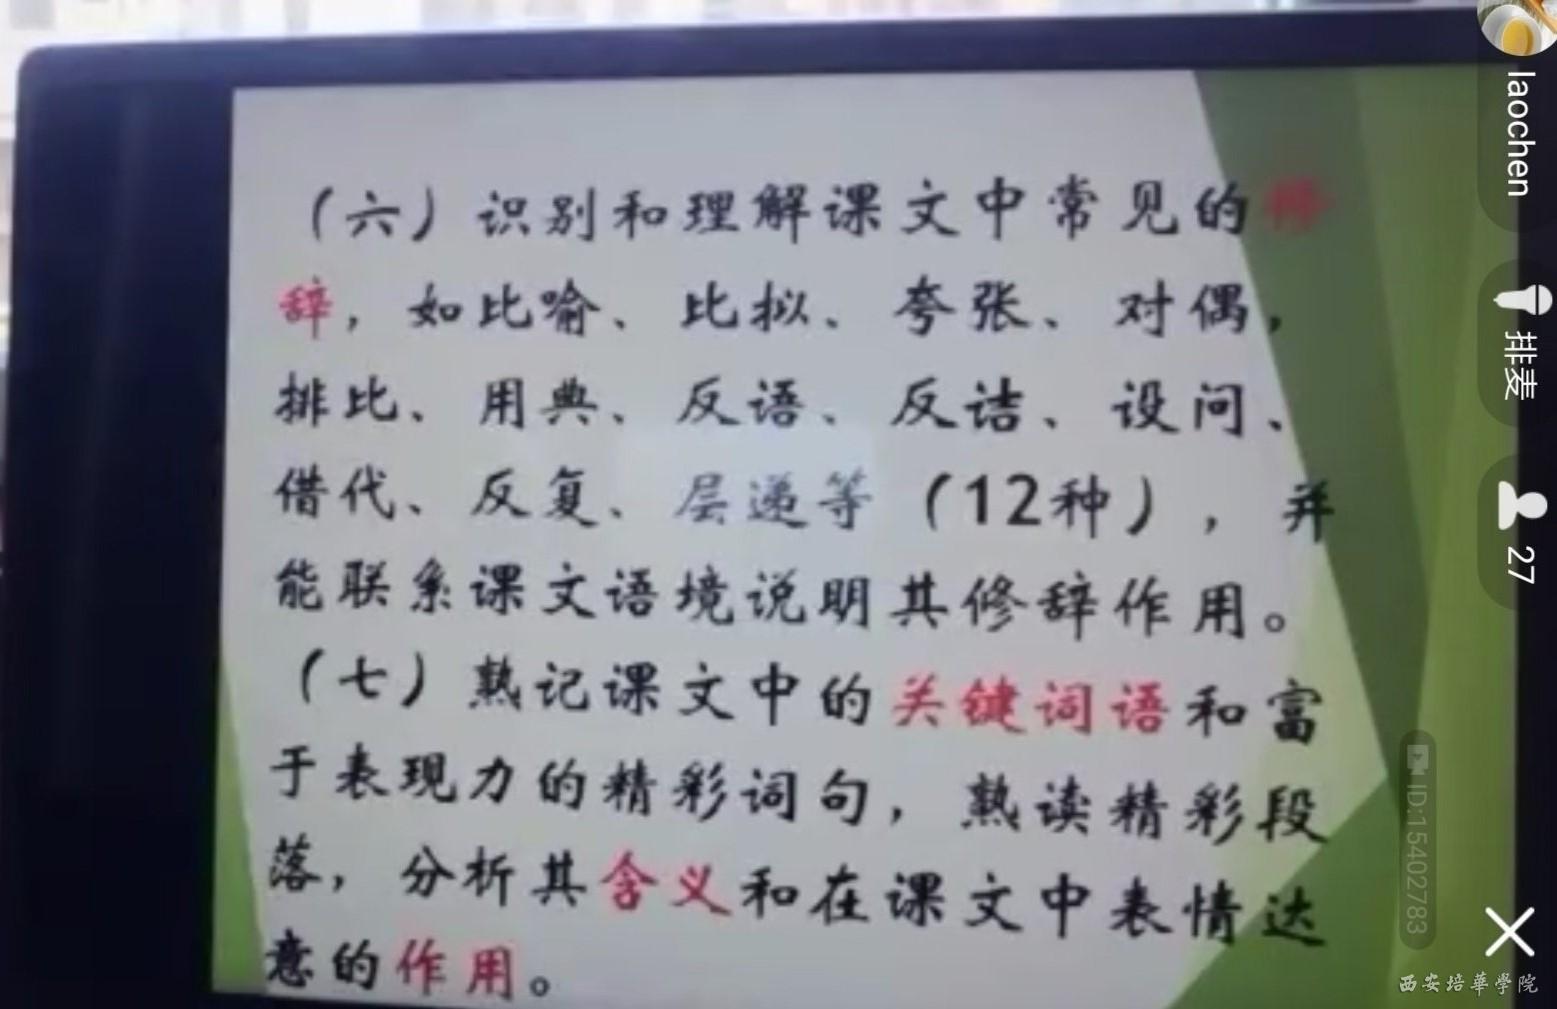 （六）识别和理解课文中常见的修
辞，如比喻、比拟、夸张、对偶，
排比、用典、反语、反诘、设问、
借代、反复、层递等（12种），并
能联系课文语境说明其修辞作用。
（七）熟记课文中的关键词语和富
于表现力的精彩词句，熟读精彩段
落，分析其含义和在课文中表情达
意的作用。
laochen
排麦
27
ID:15402783
西安培華學院